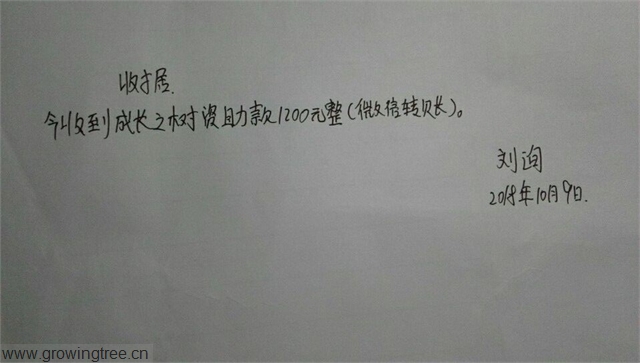 收据
今收到成长之树资助款1200元整(微信转账)。
刘洵
2018年10月9日.
www.growingtree.cn